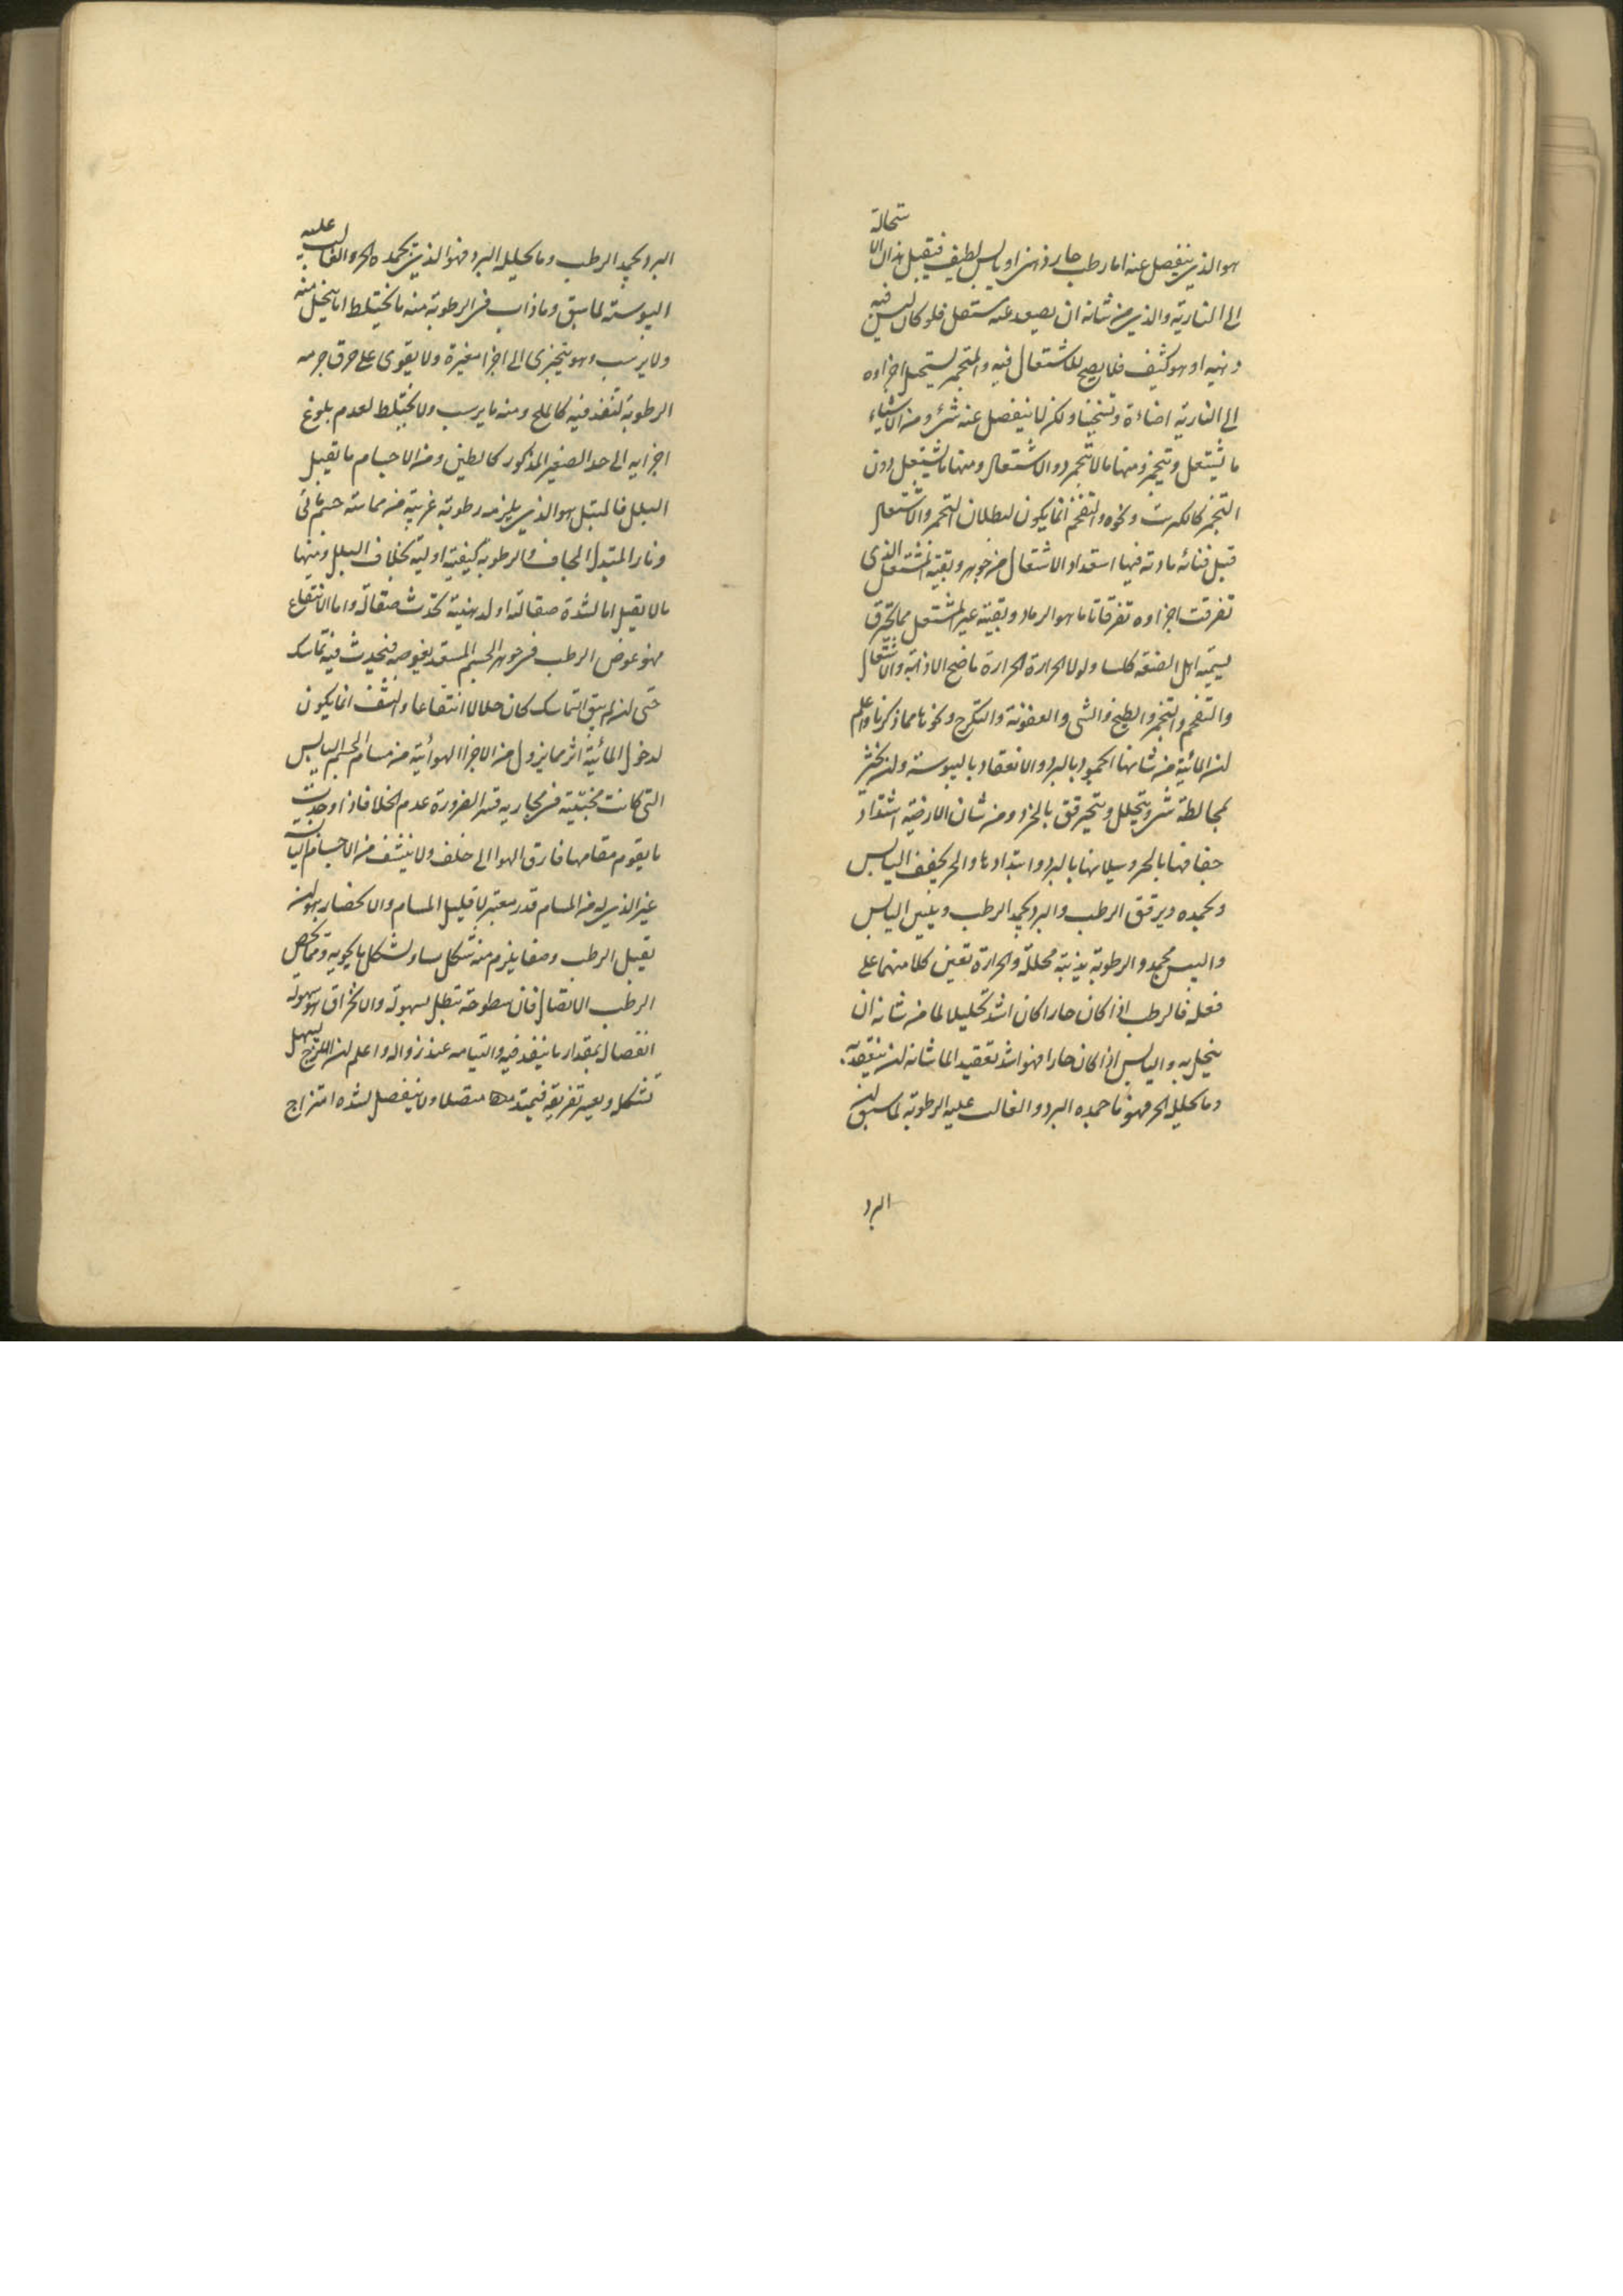 هو الذى ينفصل عنه اما رطب حار دهنى او يابس لطيف فيقبل هذان الا
ستحالة
الى النارية والذى من شانه ان يصعد عنه مشتعل فلو كان ليس فيه
دهنية او هو كثيف فلا يصح للاشتعال فيه والمتجمر يستحيل اجزاوه
الى النارية اضاءة وتسخينا ولكن لا ينفصل عنه شئ ومن الاشياء
ما يشتعل ويتجمر ومنها ما لا يتجمر دو الاشتعال ومنها ما يشتعل دون
التجمر كالكبريت ونحوه والتفحم انما يكون لبطلان التجمر والاشتعال
قبل فنائه مادته فيها استعداد الاشتعال من جوهر وبقية المشتعل الذى
تفرقت اجزاوه تفرقا تاما هو الرماد وبقية غير المشتعل مما يحترق
يسميه اهل الصنعة كلسا ولولا الحرارة الحرارة ما صح الاذابة والاشتعال
والتفحم والتبخر والطبخ والشى والعفونة والتكرج ونحوها مما ذكرنا واعلم
ان المائية من شانها الجمود بالبرد والانعقاد باليبوسة وان يخثر
لمخالطة شئ ويتحلل ويتحير رقق بالحر ومن شان الارضية اشتداد
جفافها بالحر وسيلانها بالبرد وابتدادها والحر يجفف اليابس
ويجمده ويرقق الرطب والبرد يجمد الرطب ويلين اليابس
واليبس مجمد والرطوبة مذيبة محللة والحرارة تعين كلا منهما على
فعله فالرطب اذا كان حارا كان اشد تحليلا لما من شانه ان
ينحل به واليابس اذا كان حارا فهو اشد تعقيدا لما شانه ان ينعقد به
وما تحليله الحر فهو ما جمده البرد والغالب عليه الرطوبة لما سبق ان
البرد
البرد يجمد الرطب وما تحليله البرد فهو الذى يجمده الحر والغالب عليه
اليبوسة لما سبق وما ذاب فى الرطوبة منه ما يختلط اما ينحل منه
ولا يرسب وهو يتجزى الى اجزا صغيرة ولا يقوى على خرق جرمه
الرطوبة لتنفذ فيه كالملح ومنه ما يرسب ولا يختلط لعدم بلوغ
اجزايه الى حد الصغير المذكور كالطين ومن الاجسام ما تقبل
البلل فالمبتل هو الذى يلزمه رطوبة غريبة من مماسة جسم مائى
الجاف والرطوبة كيفية اولية بخلاف البلل ومنها
ما لا يقبل اما لشدة صقالة او لدهنية تحدث صقالة واما الانتقاع
فهو غوص الرطب فى جوهر الجسم المستعد بغوصه فيحدث فيه تماسك
حتى ان لم يبق التماسك كان حلالا انتقاعا والنشف انما يكون
لدخول المائية اثر ما يزول من الاجزا الهوائية من مسام الجسم اليابس
التى كانت مختبئة فى مجاريه قسرا لضرورة عدم الخلا فاذا وجدت
ما يقوم مقامها فارق الهوا الى خلف ولا ينشف من الاجسام اليابسة
غير الذى له من المسام قدر معتبر لا قليل المسام والانحصار هو ان
يقبل الرطب وضعا يلزم منه تشكل مساو لشكل ما يحويه
الرطب الاتصال فان سطوحه تبطل بسهولة والانخراق هو سهولة
انفصال بمقدار ما ينفذ فيه والتيامه عند زواله واعلم ان اللزج يسهل
تشكله ويعسر تفريقه فيمتد معها متصلا ولا ينفصل لشدة امتزاج